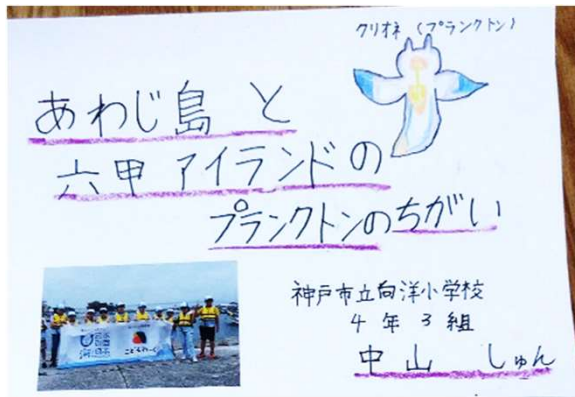 クリオネ(プランクトン)
あわじ島と
六甲アイランドの
プランクトンのちがい
神戸市立向洋小学校
4年3組
中山 しゅん